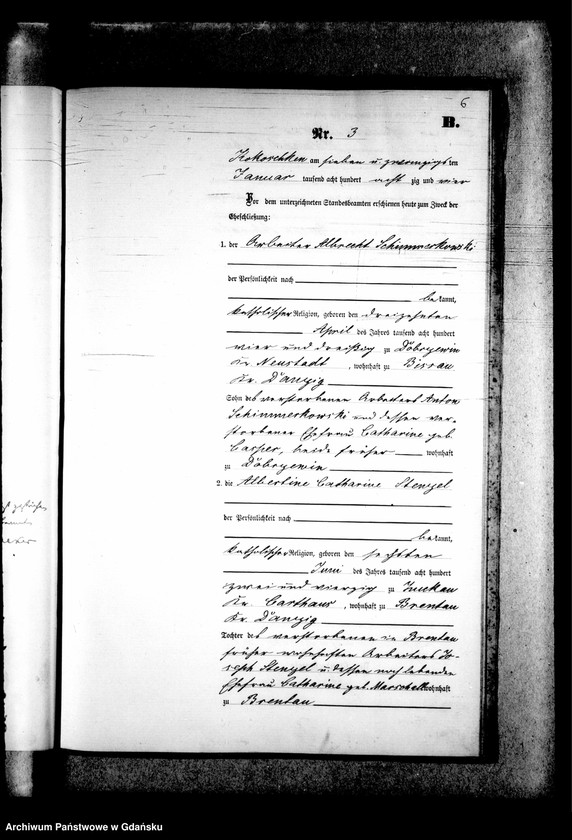 6
B.
Nr. 3
Kokoschken am sieben u. zwanzigsten
Januar tausend acht hundert acht zig und vier
Vor dem unterzeichneten Standesbeamten erschienen heute zum Zweck der
Eheschließung:
1. der Arbeiter Albrecht Schimmerkowski
der Persönlichkeit nach
bekannt,
katholischer Religion, geboren den dreizehnten
April des Jahres tausend acht hundert
vier und dreißig zu Döbrzewin
Kr. Neustadt, wohnhaft zu Bissau
Kr. Danzig
Sohn des verstorbenen Arbeiters Anton
Schimmerkowski und dessen ver-
storbener Ehefrau Catharine geb.
Casper, beide früher wohnhaft
zu Döbrzewin
2. die Albertine Catharine Stenzel
der Persönlichkeit nach
bekannt,
katholischer Religion, geboren den sechsten
Juni des Jahres tausend acht hundert
zwei und vierzig zu Zuckau
Kr. Carthaus, wohnhaft zu Brentau
Kr. Danzig
Tochter des verstorbenen in Brentau
früher wohnhaften Arbeiters Jo-
seph Stenzel u. dessen noch lebenden
Ehefrau Catharine geb. Marschall wohnhaft
zu Brentau
Archiwum Państwowe w Gdańsku